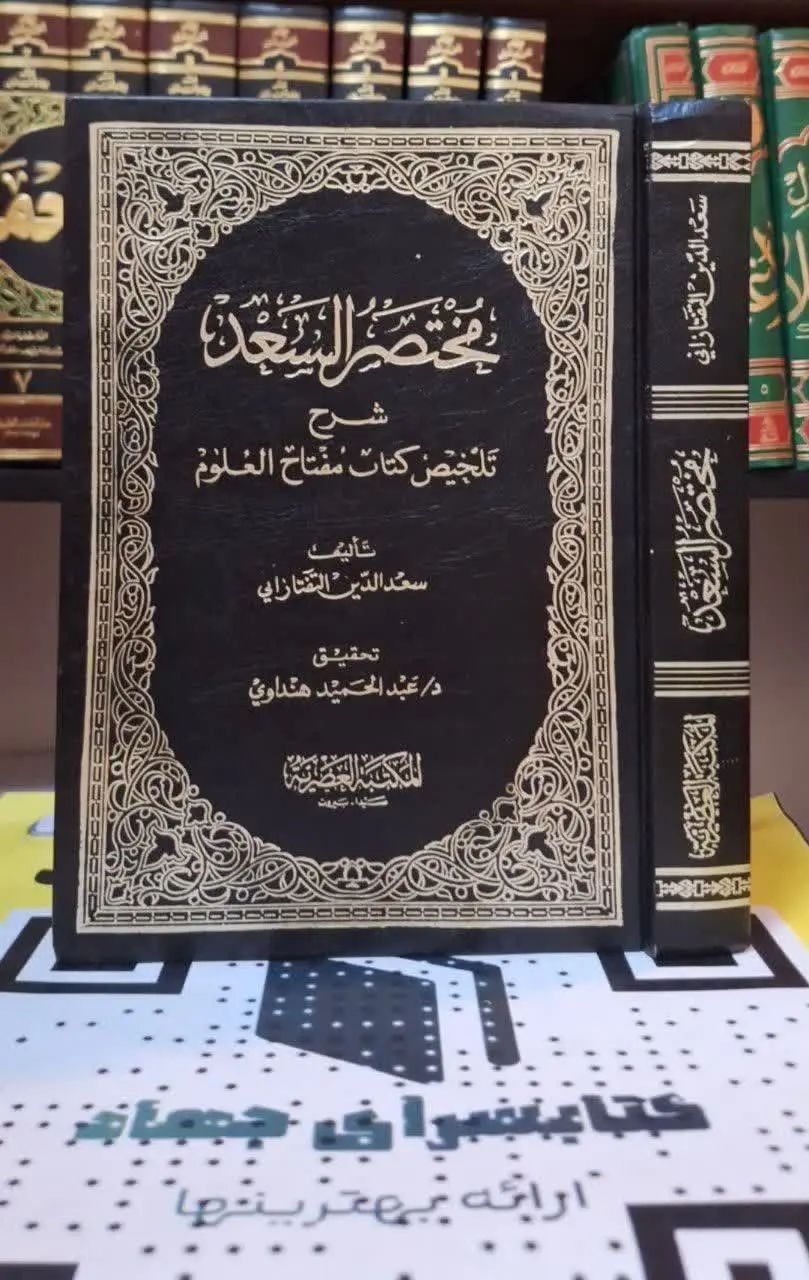 مُخْتَصَرُ السَّعْد
شرح
تَلْخِيصْ كِتَابْ مُفْتَاحْ العُلُومْ
تأليف
سَعْد الدِّين التَّفْتَازَانِي
تحقيق
د/ عَبْد الحَمِيد هِنْدَاوِي
المكتبة العصرية
صَيْدا - بَيروت
سَعْد الدِّين التَّفْتَازَانِي
مُخْتَصَرُ السَّعْد
المكتبة العصرية
٧
٥
کتابسرای جهاد
ارائه بهترینها